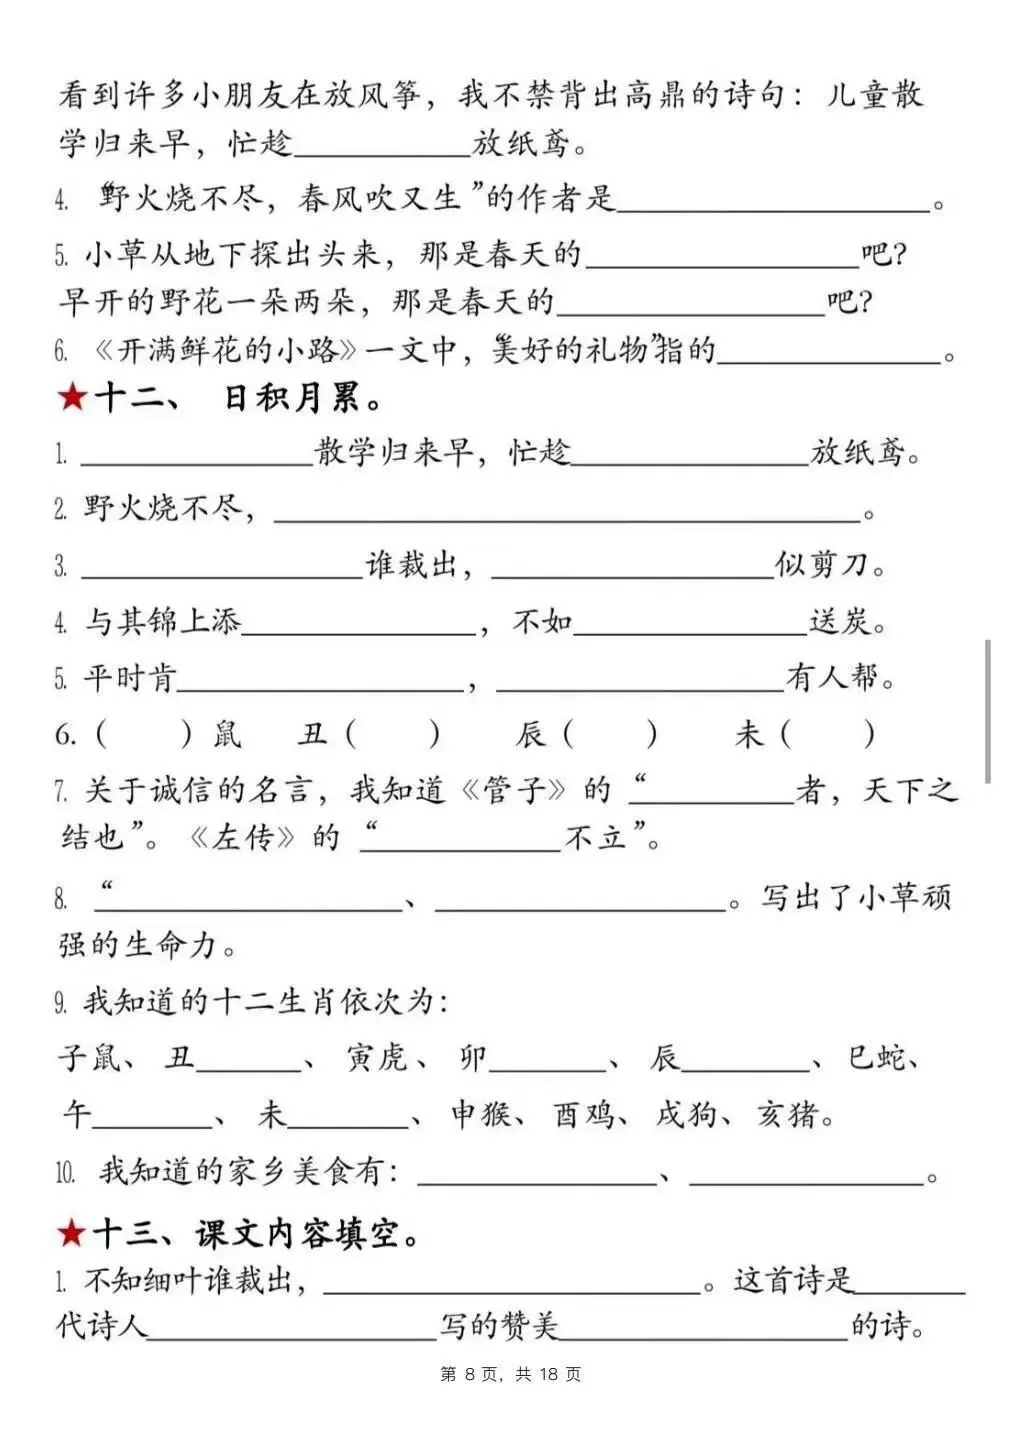 看到许多小朋友在放风筝，我不禁背出高鼎的诗句：儿童散
学归来早，忙趁___________放纸鸢。
4. “野火烧不尽，春风吹又生”的作者是____________________。
5. 小草从地下探出头来，那是春天的_________________吧？
早开的野花一朵两朵，那是春天的_________________吧？
6. 《开满鲜花的小路》一文中，“美好的礼物”指的______________。
★十二、 日积月累。
1. _______________散学归来早，忙趁_______________放纸鸢。
2. 野火烧不尽，_____________________________________。
3. __________________谁裁出，__________________似剪刀。
4. 与其锦上添_______________，不如_______________送炭。
5. 平时肯__________________，__________________有人帮。
6.（　　）鼠　丑（　　）　辰（　　）　未（　　）
7. 关于诚信的名言，我知道《管子》的“__________者，天下之
结也”。《左传》的“_____________不立”。
8. “___________________、__________________。写出了小草顽
强的生命力。
9. 我知道的十二生肖依次为：
子鼠、 丑______、 寅虎、 卯_______、 辰________、 巳蛇、
午_______、 未_______、 申猴、 酉鸡、 戌狗、 亥猪。
10. 我知道的家乡美食有：_______________、______________。
★十三、课文内容填空。
1. 不知细叶谁裁出，_______________________。这首诗是_______
代诗人__________________写的赞美__________________的诗。
第 8 页，共 18 页